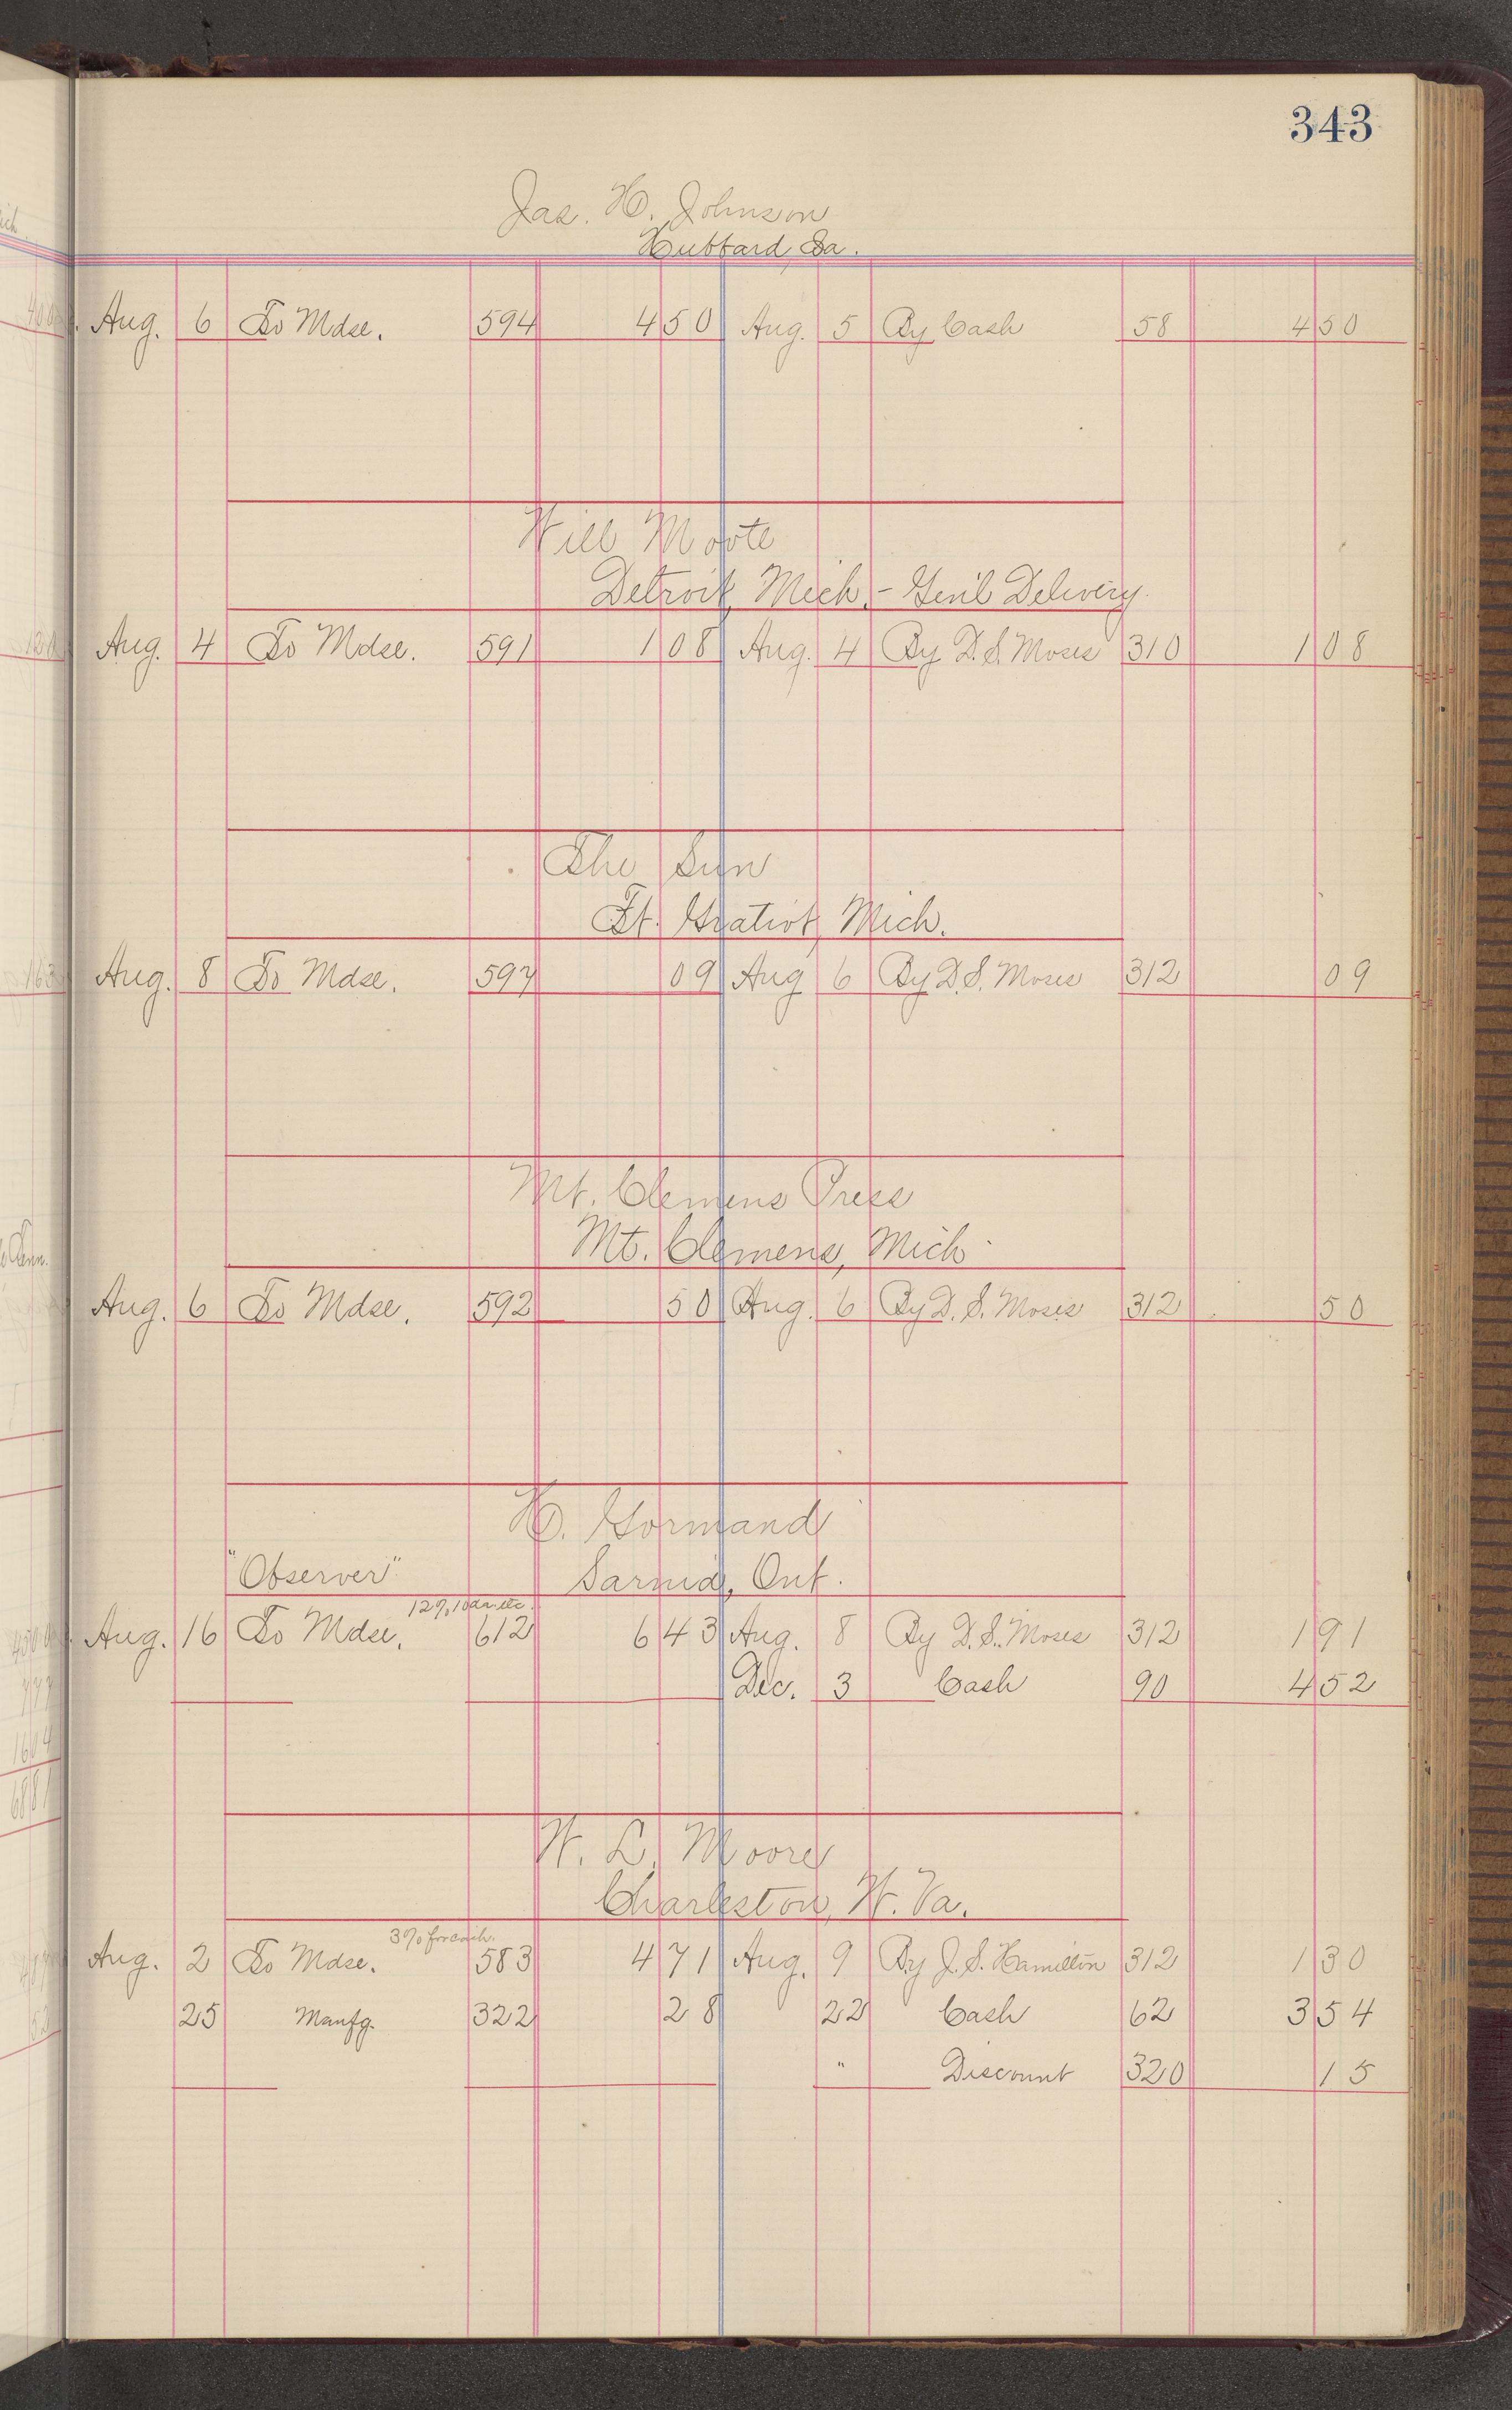 343
Jas. H. Johnson
Hubbard, Ia.
Aug. 6 To Mdse. 594 4 50 Aug. 5 By Cash 58 4 50
Will Moote
Detroit, Mich. - Gen'l Delivery
Aug. 4 To Mdse. 591 1 08 Aug. 4 By D. S. Moses 310 1 08
The Sun
Ft. Gratiot, Mich.
Aug. 8 To Mdse. 597 09 Aug 6 By D. S. Moses 312 09
Mt. Clemens Press
Mt. Clemens, Mich.
Aug. 6 To Mdse. 592 50 Aug. 6 By D. S. Moses 312 50
H. Gormand
"Observer" Sarnia, Ont.
12% 10 da. etc.
Aug. 16 To Mdse. 612 6 43 Aug. 8 By D. S. Moses 312 1 91
Dec. 3 Cash 90 4 52
W. L. Moore
Charleston, W. Va.
3% for cash.
Aug. 2 To Mdse. 583 4 71 Aug. 9 By J. S. Hamilton 312 1 30
25 Manfg. 322 28 22 Cash 62 3 54
" Discount 320 15